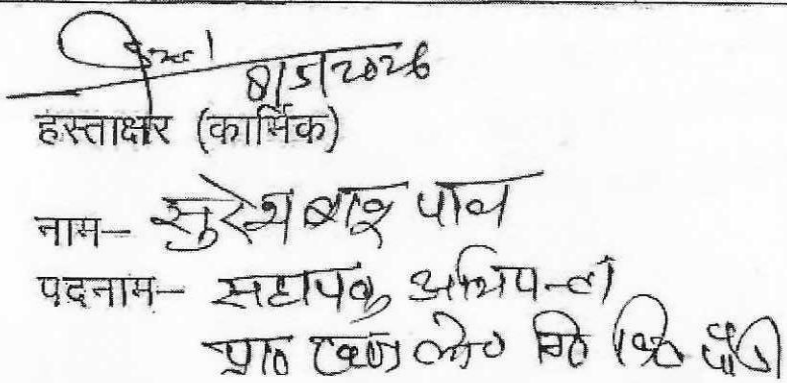 8/5/2026
हस्ताक्षर (कार्मिक)
नाम– सुरेश बाबू पाल
पदनाम– सहायक अभियन्ता
प्रा० खण्ड लो० नि० वि०